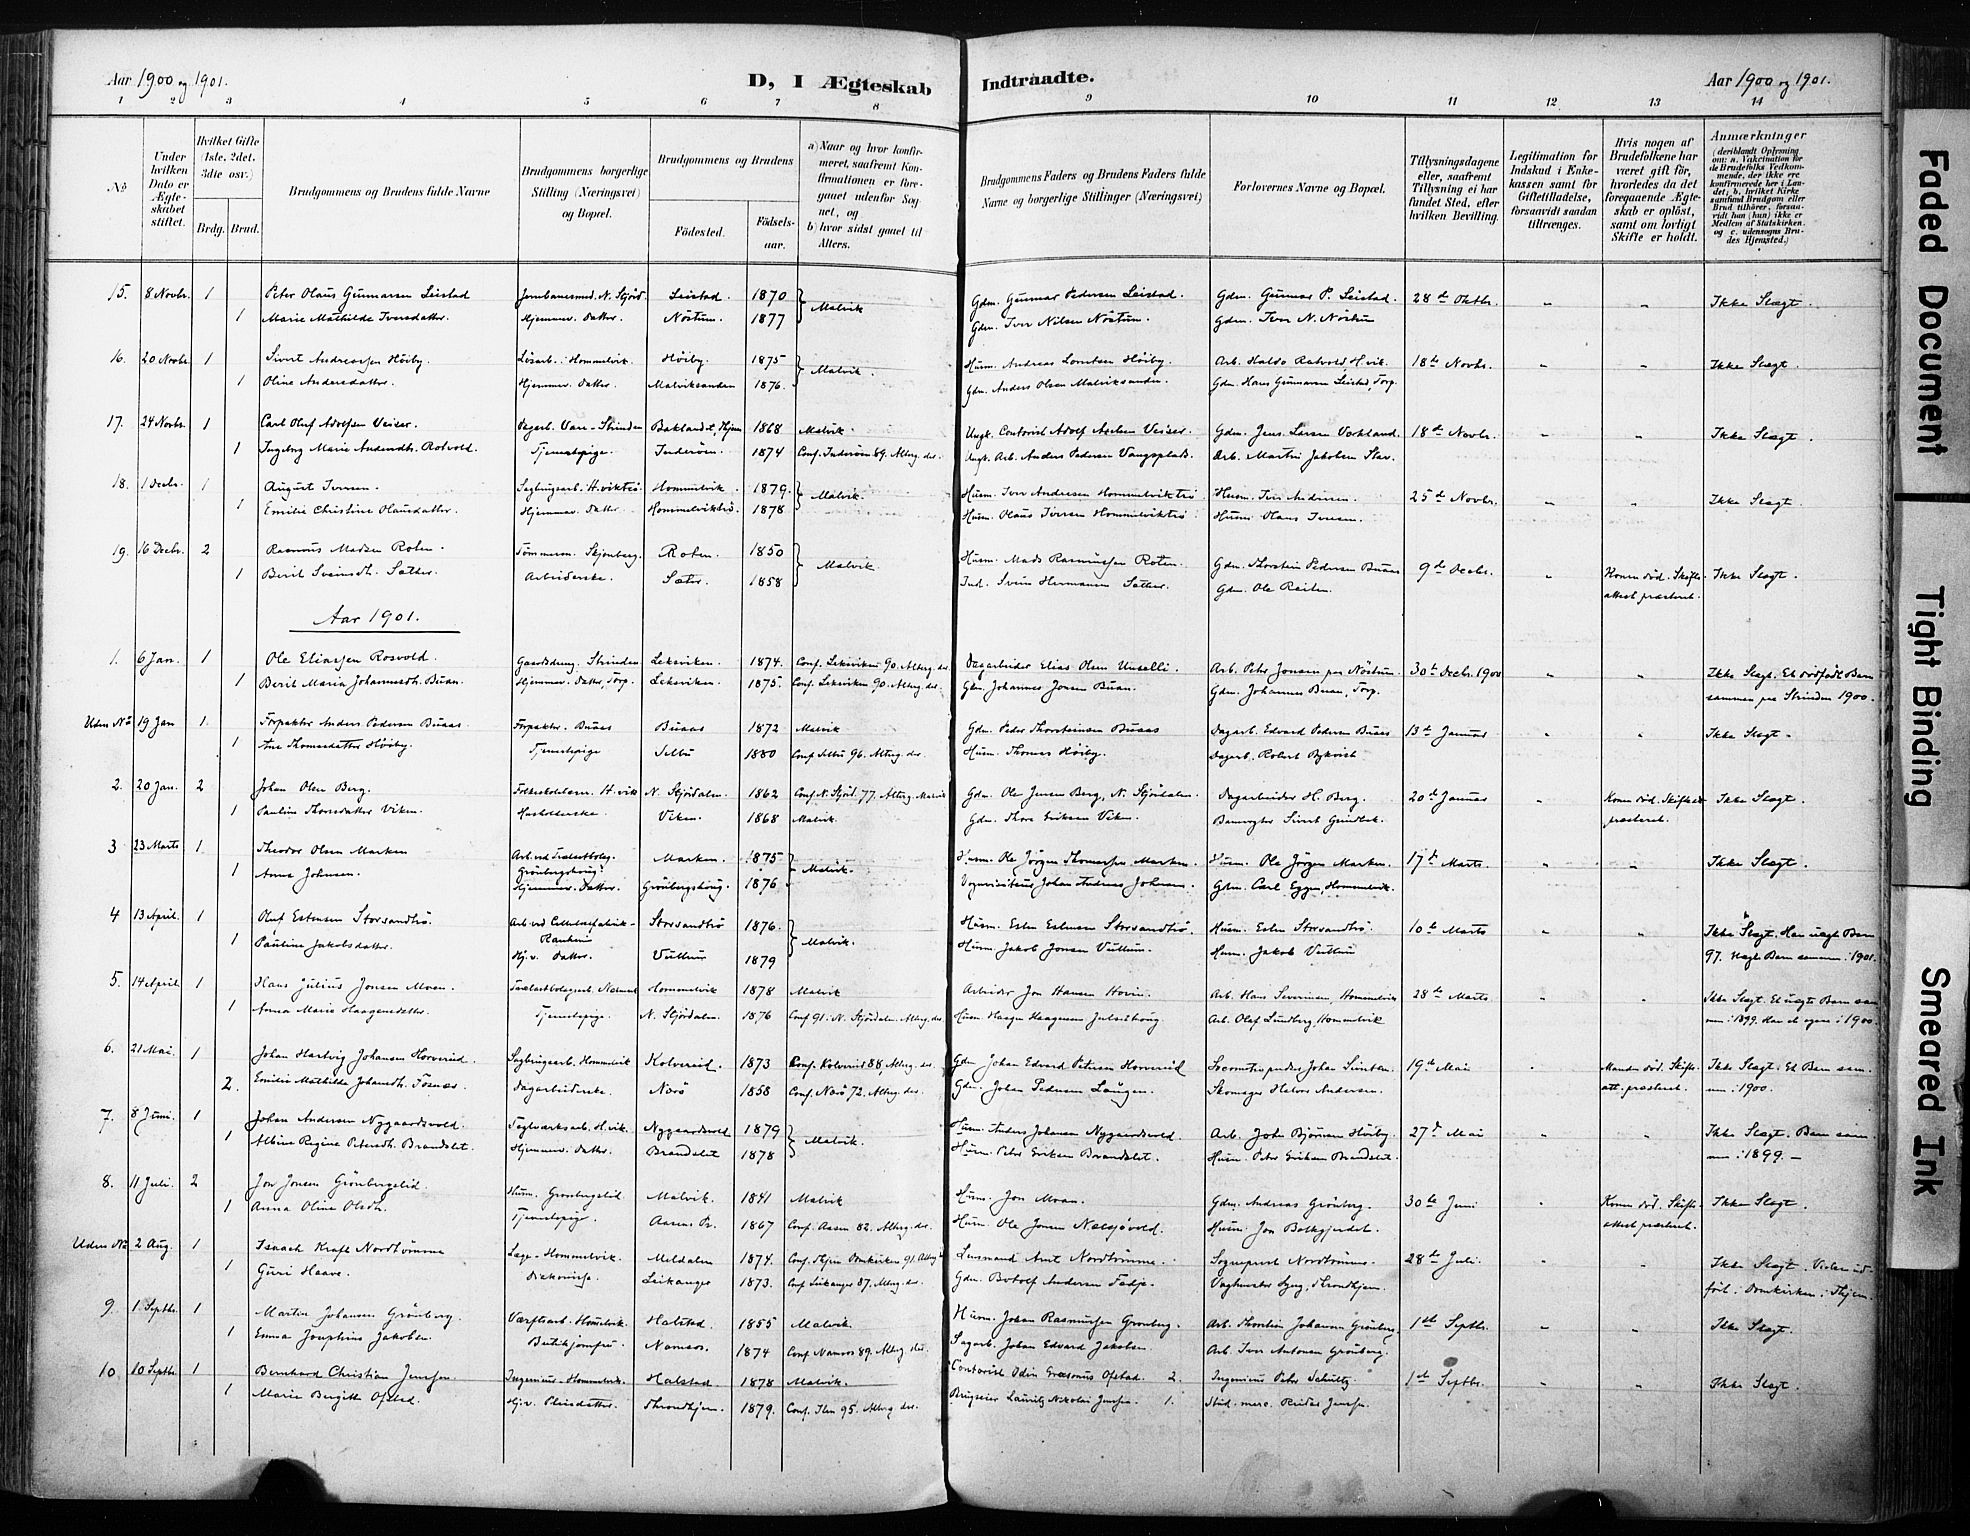 Aar 1900 og 1901.
D, I Ægteskab
Indtraadte.
Aar 1900 og 1901.
1 2 3 4 5 6 7 8 9 10 11 12 13 14
No
Under hvilken Dato er Ægteskabet stiftet.
Hvilket Gifte (1ste, 2det, 3die osv.)
Brdg. Brud.
Brudgommens og Brudens fulde Navne
Brudgommens borgerlige Stilling (Næringsvei) og Bopæl.
Brudgommens og Brudens
Födested.
Födsels-aar.
a) Naar og hvor konfirmeret, saafremt Konfirmationen er foregaaet udenfor Sognet, og
b) hvor sidst gaaet til Alters.
Brudgommens Faders og Brudens Faders fulde Navne og borgerlige Stillinger (Næringsvei)
Forlovernes Navne og Bopæl.
Tillysningsdagene eller, saafremt Tillysning ei har fundet Sted, efter hvilken Bevilling.
Legitimation for Indskud i Enkekassen samt for Giftetilladelse, forsaavidt saadan tiltrænges.
Hvis nogen af Brudefolkene har været gift för, hvorledes da det foregaaende Ægteskab er oplöst, samt om lovligt Skifte er holdt.
Anmærkninger
(deriblandt Oplysning om: a. Vakcination for de Brudefolks Vedkommende, der ikke ere konfirmerede her i Landet; b. hvilket Kirkesamfund Brudgom eller Brud tilhörer, forsaavidt han (hun) ikke er Medlem af Statskirken, og c. udensogns Brudes Hjemsted.)
15. 8 Novbr. 1 Peter Olaus Gunnarsen Leistad Jernbanemed. N. Stjörd. Leistad. 1870 Malvik Gdm. Gunnar Pedersen Leistad. Gdm. Gunnar P. Leistad. 28de Oktbr. Ikke Slægt.
1 Marie Mathilde Iversdatter. Hjemmev. Datter. Nöstum. 1877 Gdm. Iver Nilsen Nöstum. Gdm. Iver N. Nöstum
16. 20 Novbr. 1 Sivert Andreassen Höiby. Lösarb. i Hommelvik. Höiby. 1875 Malvik. Husm. Andreas Lorntsen Höiby. Arb. Haldo Ratvold, H.vik. 18de Novbr. Ikke Slægt.
1 Oline Andersdatter. Hjemmev. Datter. Malviksanden 1876. Gdm. Anders Olsen Malviksanden. Gdm. Hans Gunnarsen Leistad, Torp.
17. 24 Novbr. 1 Carl Oluf Adolfsen Veiser. Dagarb. Strinden Baklandet, Thjem 1868 Malvik. Ungk. Contorist Adolf Veiser. Gdm. Jens Larsen 18de Novbr. Ikke Slægt.
1 Ingeborg Marie Andersdtr. Rotvold. Tjenestepige. Inderöen. 1874 Conf. Inderöen 89. Altrg. der. Ungk. Arb. Anders Pedersen Vangsplads. Arb. Martin Jakobsen Stav.
18. 1 Decbr. 1 August Iversen. Sagbrugsarb. H.viktrö Hommelvik 1879. Malvik. Husm. Iver Andersen Hommelviktrö Husm. Iver Andersen. 25de Novbr. Ikke Slægt.
1 Emilie Christine Olausdatter. Hjemmev. Datter Hommelviktrö. 1878 Husm. Olaus Iversen Hommelviktrö Husm. Olaus Iversen.
19. 16 Decbr. 2 Rasmus Madsen Roten. Tömmerm. Skjenberg. Roten. 1850 Malvik Husm. Mads Rasmussen Roten. Gdm. Thorstein Pedersen Buaas 9de Decbr. Konen död. Skifteattest præsteret. Ikke Slægt.
1 Berit Sveinsdtr. Sæther. Arbeiderske. Sæter. 1858 Ind. Svein Hermansen Sæther. Gdm. Ole Reiten.
Aar 1901.
1. 6 Jan. 1 Ole Eliassen Rosvold. Gaardsdreng. Strinden Leksviken. 1874. Conf. Leksviken 90. Altrg. der. Dagarbeider Elias Olsen Arb. Peter Jonsen paa Nöstum 30te Decbr. 1900 Ikke Slægt. Et dödfödt Barn
1 Berit Maria Johannesdtr. Buan. Hjemmev. Datter, Torp. Leksviken. 1875. Conf. Leksviken 90. Altrg. der. Gdm. Johannes Jonsen Buan. Gdm. Johannes Buan, Torp. sammen paa Strinden 1900.
Uden No 19 Jan 1 Forpakter Anders Pedersen Buaas. Forpakter. Buaas Buaas 1872 Malvik Gdm. Peder Thorsteinsen Buaas Dagarb. Edvard Pedersen Buaas 13de Januar Ikke Slægt.
1 Ane Thomasdatter Höiby. Tjenestepige Selbu 1880 Conf. Selbu 96. Altrg. der. Husm. Thomas Höiby. Dagarb. Robert Bykvist
2. 20 Jan. 2 Johan Olsen Berg. Folkeskolelærer. H.vik N. Stjördalen. 1862 Conf. N. Stjörd. 77. Altrg. Malvik Gdm. Ole Jensen Berg, N. Stjördalen. Dagarbeider H. Berg. 20de Januar Konen död. Skifteatt. præsteret. Ikke Slægt.
1 Pauline Thoresdatter Viken. Husholderske Viken. 1868 Malvik. Gdm. Thore Eriksen Viken. Banevogter Sivert
3 23 Marts 1 Theodor Olsen Marken Arb. ved Trælastbolag. Grönbergshaug. Marken. 1875 Malvik. Husm. Ole Jörgen Thomassen Marken. Husm. Ole Jörgen Marken. 17de Marts Ikke Slægt.
1 Anna Johnsen. Hjemmev. Datter. Grönbergshaug. 1876 Johan Andreas Johnsen. Gdm. Carl Eggen, Hommelvik.
4 13 April. 1 Oluf Estensen Storsandtrö. Arb. ved Cellulosefabrik- Ranheim Storsandtrö 1876. Malvik. Husm. Esten Estensen Storsandtrö. Husm. Esten Storsandtrö. 10de Marts Ikke Slægt. Han uægt. Barn
1 Pauline Jakobsdatter. Hj.v. Datter. Vuttum 1879 Husm. Jakob Jonsen Vuttum. Husm. Jakob Vuttum 97. Uægte Barn sammen i 1901.
5. 14 April 1 Hans Julius Jonsen Moen. Hommelvik 1878 Malvik Arbeider Jon Hansen Arb. Hans Severinsen, Hommelvik 28de Marts Ikke Slægt. Et uægte Barn sam-
1 Anna Marie Haagensdatter. Tjenestepige. N. Stjördalen. 1876 Conf 91. N. Stjördalen. Altrg. der. Husm. Haagen Haagensen Arb. Olaf Lundberg, Hommelvik men i 1899. Han et i 1900.
6. 21 Mai. 1 Johan Hartvig Johansen Horverud. Sagbrugsarb. Hommelvik Kolvereid. 1873 Conf. Kolvereid 88, Altrg. der. Gdm. Johan Edvard Petersen Horverud Johan 19de Mai Manden död. Skifteatt. præsteret. Ikke Slægt. Et Barn sam-
2. Emilie Mathilde Johansdtr. Fosnæs. Dagarbeiderske Nærö 1858 Conf. Nærö 72. Altrg. der. Gdm. Johan Pedersen Laugen. Skomager Helmer Andersen. men i 1900.
7. 8 Juni. 1 Johan Andersen Nygaardsvold. Teglværksarb. H.vik. Nygaardsvold 1879 Malvik. Husm. Anders Johansen Nygaardsvold. Arb. John Bjørnsen Höiby. 27de Mai Ikke Slægt. Barn sam-
1 Albine Regine Petersdtr. Brandslet. Hjemmev. Datter. Brandslet 1878 Husm. Peter Eriksen Brandslet. Husm. Peter Eriksen Brandslet. men i 1899.
8. 11 Juli. 2 Jon Jonsen Grönbergslid. Husm. Grönbergslid Malvik. 1841 Malvik Husm. Jon Moan. Gdm. Andreas Grönberg. 30te Juni Konen död. Skifteattest præsteret. Ikke Slægt.
1 Anna Oline Olsdtr. Tjenestepige. Aasen Pr. 1867 Conf. Aasen 82. Altrg. der. Husm. Ole Jonsen Husm. Jon
Uden No 2 Aug. 1 Isaach Kraft Nordtömme Læge - Hommelvik. Meldalen 1874. Conf. Thjem Domkirken 91. Altrg Lensmand Arnt Nordtömme. Sogneprest Nordtömme. 28de Juli. Ikke Slægt. Vielsen ud-
1 Guri Haave. Diakonisse. Leikanger 1873. Conf Leikanger 87. Altrg. der. Gdm. Botolf Andersen Throndhjem. fört i Domkirken i Thjem.
9. 1 Septbr. 1 Martin Johansen Grönberg. Værftsarb. Hommelvik Halstad. 1855 Malvik Husm. Johan Rasmussen Grönberg. Arb. Thorstein Johansen Grönberg 1ste Septbr. Ikke Slægt.
1 Emma Josephine Jakobsen Butikjomfru. Namsos. 1874 Conf Namsos 89. Altrg. der. Sagarb. Johan Edvard Jakobsen. Arb. Iver Antonsen Grönberg.
10 10 Septbr 1 Bernhard Christian Jenssen. Ingeniör - Hommelvik. Halstad 1878 Malvik. Contorist Odin Erasmus Ofstad 2. Ingeniör Peter Schultz 1ste Septbr. Ikke Slægt.
1 Marie Birgitte Ofstad. Hj.v. Pleiedatter. Throndhjem. 1879. Conf. Ilen 95. Altrg. der. Brugseier Lauritz Nikolai Jenssen. 1. Stud. merc. Reidar Jenssen.
Faded Document
Tight Binding
Smeared Ink